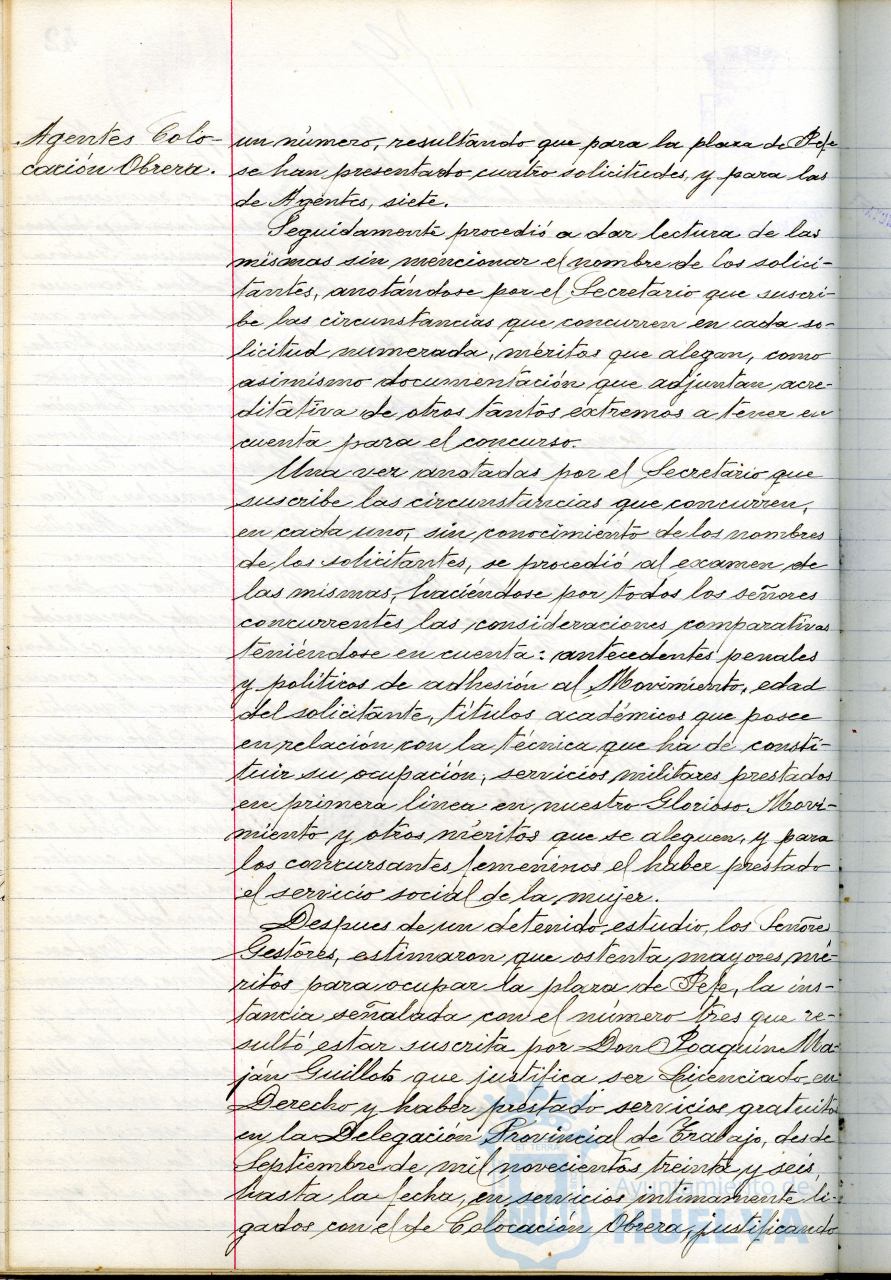 Agentes Colo-
cación Obrera.
un número, resultando que para la plaza de Jefe
se han presentado cuatro solicitudes, y para las
de Agentes, siete.
Seguidamente procedió a dar lectura de las
mismas sin mencionar el nombre de los solici-
tantes, anotándose por el Secretario que suscri-
be las circunstancias que concurren en cada so-
licitud numerada, méritos que alegan, como
asimismo documentación que adjuntan, acre-
ditativa de otros tantos extremos a tener en
cuenta para el concurso.
Una vez anotadas por el Secretario que
suscribe las circunstancias que concurren,
en cada uno, sin conocimiento de los nombres
de los solicitantes, se procedió al examen de
las mismas, haciéndose por todos los señores
concurrentes las consideraciones comparativas
teniéndose en cuenta: antecedentes penales
y políticos de adhesión al Movimiento, edad
del solicitante, títulos académicos que posee
en relación con la técnica que ha de consti-
tuir su ocupación, servicios militares prestados
en primera línea en nuestro Glorioso Movi-
miento y otros méritos que se aleguen, y para
los concursantes femeninos el haber prestado
el servicio social de la mujer.
Despues de un detenido estudio, los Señores
Gestores, estimaron que ostenta mayores mé-
ritos para ocupar la plaza de Jefe, la ins-
tancia señalada con el número tres que re-
sultó estar suscrita por Don Joaquín Ma-
ján Guilloto que justifica ser Licenciado en
Derecho y haber prestado servicios gratuitos
en la Delegación Provincial de Trabajo, desde
Septiembre de mil novecientos treinta y seis,
hasta la fecha, en servicios íntimamente li-
gados con el de Colocación Obrera, justificando
Ayuntamiento de
HUELVA